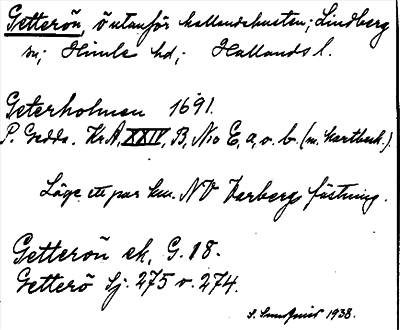 Getterön, ö utanför hallandskusten; Lindberg
sn; Himle hd; Hallands l.
Geterholmen 1691.
P. Gedda. Kr A, XXIV, B, No E, a, o. b. (m. kartbesk.).
Läge ett par km. NV Varbergs fästning.
Getterön ek. G. 18.
Getterö Sj. 275 o. 274.
S. 1938.